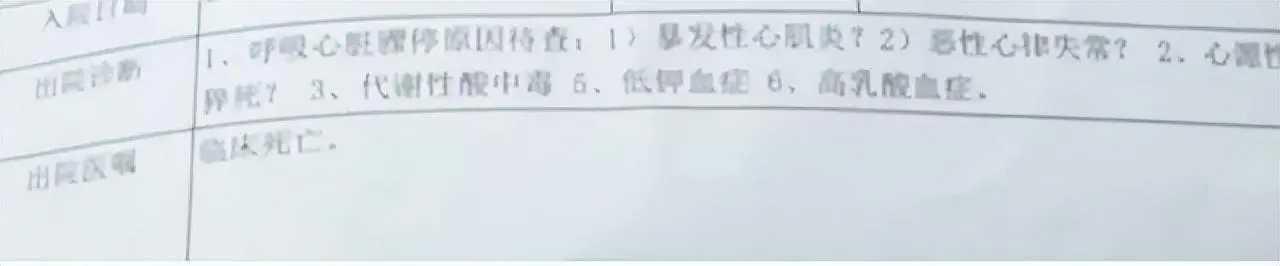 入院日期
出院诊断
1、呼吸心脏骤停原因待查：1）暴发性心肌炎？2）恶性心律失常？ 2、心源性
猝死？ 3、代谢性酸中毒 5、低钾血症 6、高乳酸血症。
出院医嘱
临床死亡。